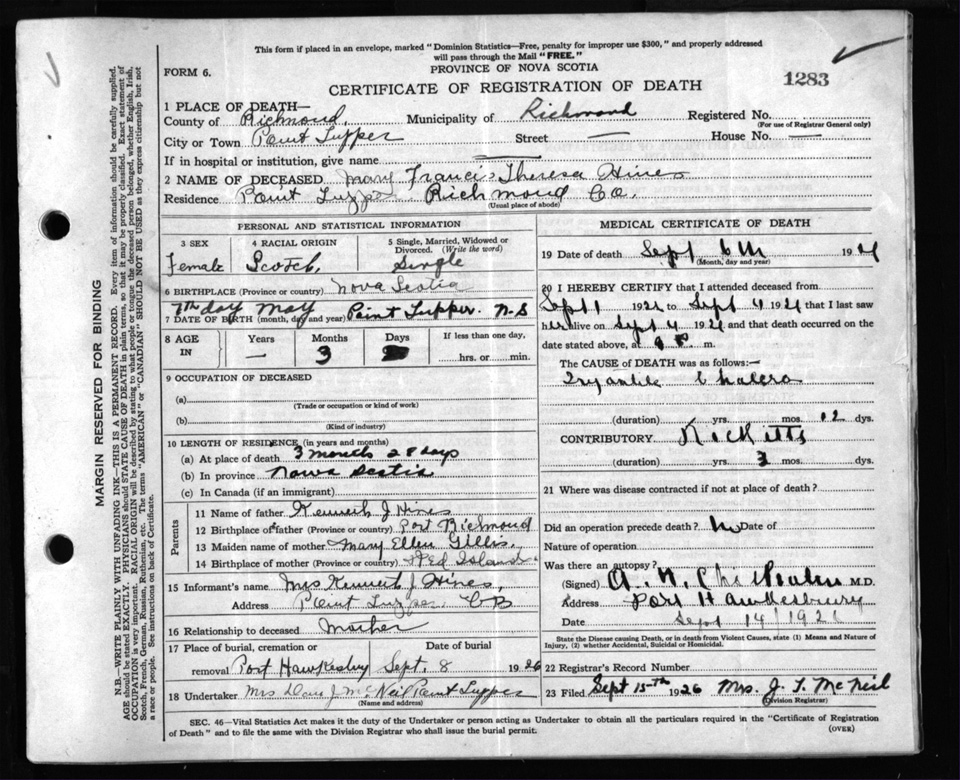 This form if placed in an envelope, marked "Dominion Statistics—Free, penalty for improper use $300," and properly addressed
will pass through the Mail "FREE."
FORM 6.
PROVINCE OF NOVA SCOTIA
1283
CERTIFICATE OF REGISTRATION OF DEATH
1 PLACE OF DEATH—
County of Richmond, Municipality of Richmond Registered No.
(For use of Registrar General only)
City or Town Point Tupper Street — House No. —
If in hospital or institution, give name —
2 NAME OF DECEASED Mary Francis Theresa Hines
Residence Point Tupper Richmond Co.
(Usual place of abode)
PERSONAL AND STATISTICAL INFORMATION
3 SEX 4 RACIAL ORIGIN 5 Single, Married, Widowed or
Divorced. (Write the word)
Female Scotch Single
6 BIRTHPLACE (Province or country) Nova Scotia
7th day May Point Tupper. N-S
7 DATE OF BIRTH (month, day and year)
8 AGE IN Years Months Days If less than one day,
— 3 hrs. or min.
9 OCCUPATION OF DECEASED
(a)
(Trade or occupation or kind of work)
(b)
(Kind of industry)
10 LENGTH OF RESIDENCE (in years and months)
(a) At place of death 3 months 28 days
(b) In province Nova Scotia
(c) In Canada (if an immigrant)
Parents
11 Name of father Kenneth J Hines
12 Birthplace of father (Province or country) Port Richmond
13 Maiden name of mother Mary Ellen Gillis.
14 Birthplace of mother (Province or country) Red Island
15 Informant's name Mrs Kenneth J. Hines
Address Point Tupper CB
16 Relationship to deceased Mother
17 Place of burial, cremation or Date of burial
removal Port Hawkesbry Sept. 8 1926
18 Undertaker Mrs J. McNeil Point Tupper
(Name and address)
MEDICAL CERTIFICATE OF DEATH
19 Date of death Sept 6th 192
(Month, day and year)
20 I HEREBY CERTIFY that I attended deceased from
Sept 1 192 to Sept 4 192 that I last saw
her alive on Sept 4 192 and that death occurred on the
date stated above, at m.
The CAUSE OF DEATH was as follows:—
Infantile Cholera
(duration) yrs. mos. 12 dys.
CONTRIBUTORY Ricketts
(duration) yrs. 3 mos. dys.
21 Where was disease contracted if not at place of death?
Did an operation precede death? No Date of
Nature of operation
Was there an autopsy?
(Signed) A. N. Chisholm M.D.
Address Port Hawkesbury
Date Sept 14 192
State the Disease causing Death, or in death from Violent Causes, state (1) Means and Nature of
Injury, (2) whether Accidental, Suicidal or Homicidal.
22 Registrar's Record Number
23 Filed Sept 15th 1926 Mrs. J. T. McNeil
(Division Registrar)
SEC. 46—Vital Statistics Act makes it the duty of the Undertaker or person acting as Undertaker to obtain all the particulars required in the "Certificate of Registration
of Death" and to file the same with the Division Registrar who shall issue the burial permit. (OVER)
MARGIN RESERVED FOR BINDING
N.B.—WRITE PLAINLY WITH UNFADING INK—THIS IS A PERMANENT RECORD. Every item of information should be carefully supplied.
AGE should be stated EXACTLY. PHYSICIANS should STATE CAUSE OF DEATH in plain terms, so that it may be properly classified. Exact statement of
OCCUPATION is very important. RACIAL ORIGIN will be described by stating to what people or tongue the deceased person belonged, whether English, Irish,
Scotch, French, German, Russian, Ruthenian, etc. The terms "AMERICAN" or "CANADIAN" SHOULD NOT BE USED as they express citizenship but not
a race or people. See instructions on back of Certificate.